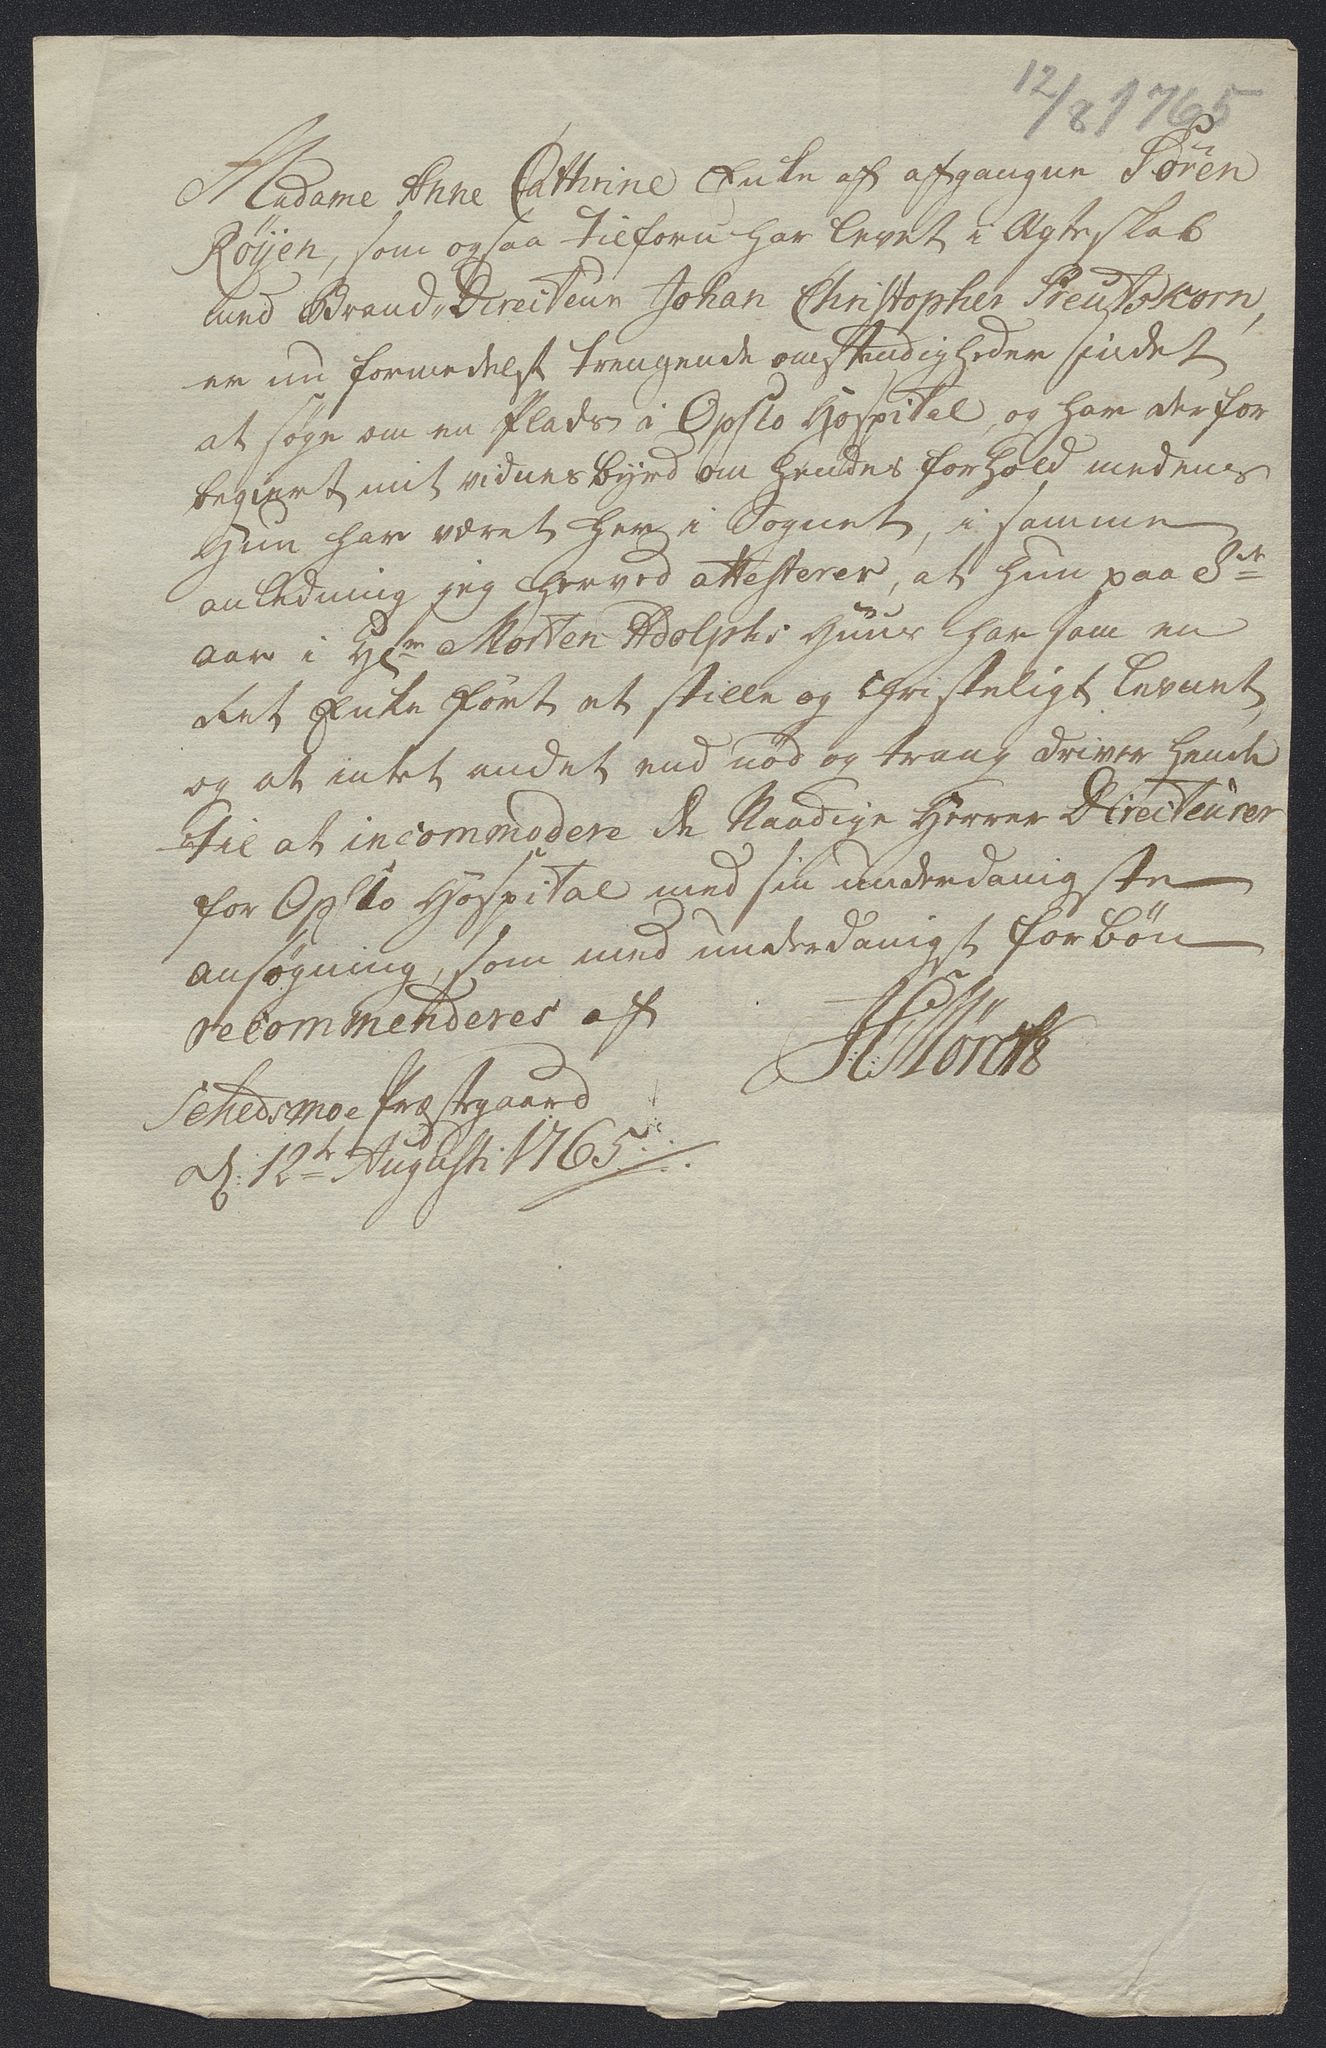 12/8 1765
Madame Anne Cathrine Enke af afgangne Sören
Röÿen, som ogsaa tilforn har levet i Ægteskab
med Brand-Directeur Johan Christopher Preutskorn,
er nu formedelst trengende omstendigheder sindet
at søge om en Plads i Opslo Hospital, og har derfor
begiert mit vidnesbyrd om hendes forhold medens
Hun har været her i Sognet, i samme
anledning jeg herved attesterer, at hun paa 3die
aar i Hr Morten Adolphs Huus har som en
ret Enke ført et stille og christeligt levnet,
og at intet andet end nød og trang driver hende
til at incommodere de Naadige Herrer Directeurer
for Opslo Hospital med sin underdanigste
ansøgning, som med underdanigst forbøn
recommenderes af
HMörch
Schedsmoe Præstgaard
d. 12te Augusti 1765.